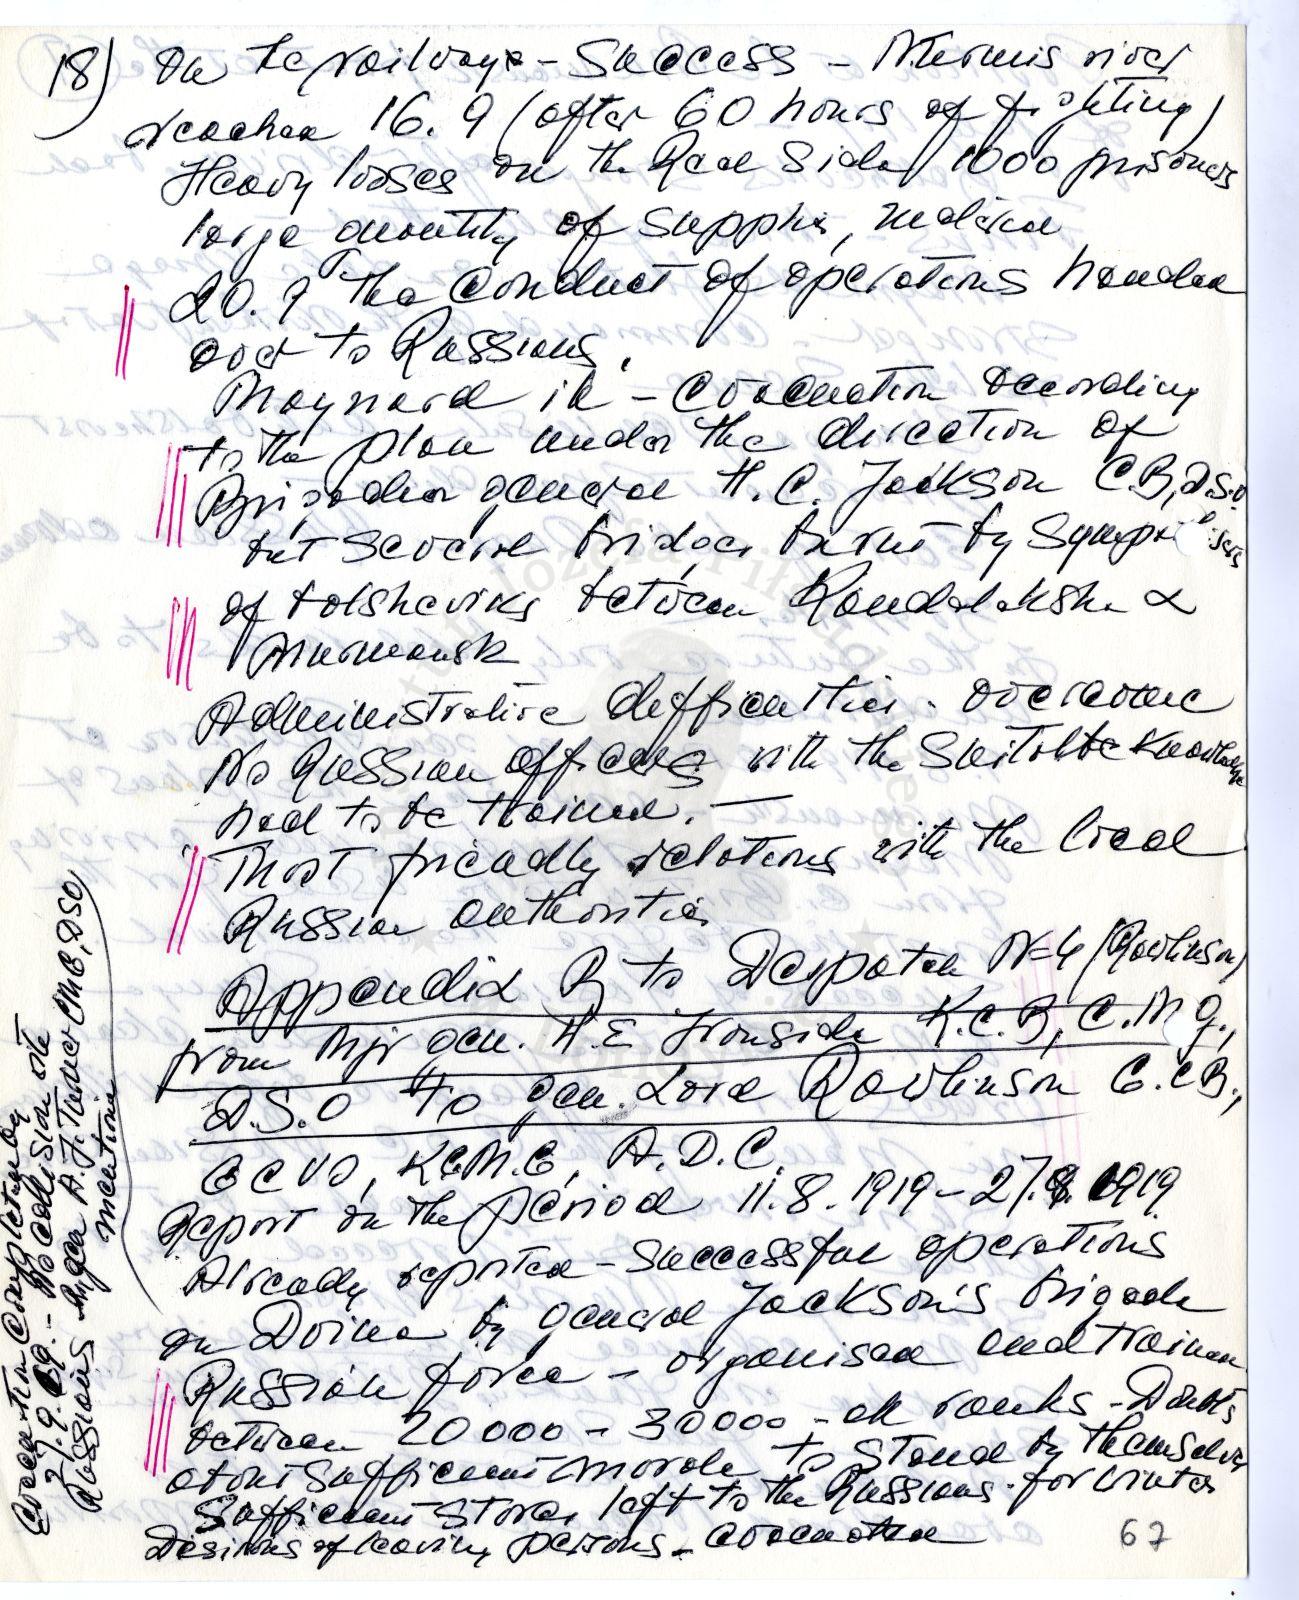 18) On the railway - Success - Nurmis river
reached 16.9 (after 60 hours of fighting)
Heavy losses on the Red Side, 1000 prisoners
large quantity of supplies, material
20.9 The Conduct of operations handed
over to Russians.
Maynard ill - evacuation according
to the plan under the direction of
Brigadier general H.C. Jackson C.B, D.S.O
but several bridges burnt by sympathisers
of bolsheviks between Kandalaksha &
Murmansk
Administrative difficulties - overcome
No Russian officers with the suitable knowledge
had to be trained. —
Most friendly relations with the local
Russian authorities
Appendix B to Despatch N-4 (Rawlinson)
from Mjr gen. H.E Ironside K.C.B, C.M.G.,
D.S.O to gen. Lord Rawlinson G.C.B.,
GCVO, KCMG, A.D.C.
Report on the period 11.8.1919 - 27.9.1919
Already reported - successful operations
on Dvina by general Jackson's brigade
Russian force - organised and trained
between 20000 - 30000 - all ranks - Doubts
about sufficient morale to stand by themselves
Sufficient stores left to the Russians for winter
Desirous of leaving persons - evacuated
Evacuation completed by
27.9.19. - No collision with
Russians. Mjgen A.J. Turner CMG, DSO
67
Instytut Józefa Piłsudskiego